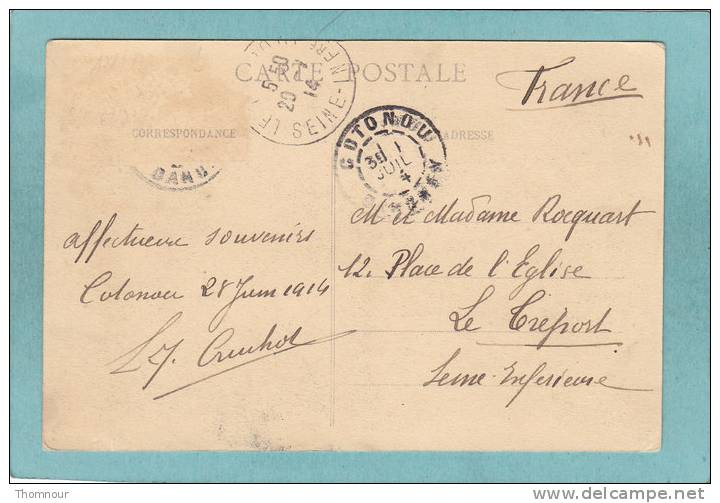 CARTE POSTALE
France
CORRESPONDANCE
ADRESSE
5-50
20 - 7
14
SEINE-INFRE
COTONOU
30
JUIL
DAHO
affectueux souvenirs
Cotonou 28 Juin 1914
M et Madame Rocquart
12, Place de l'Eglise
Le Treport
Seine Inferieure
Thomnour
www.delcampe.net